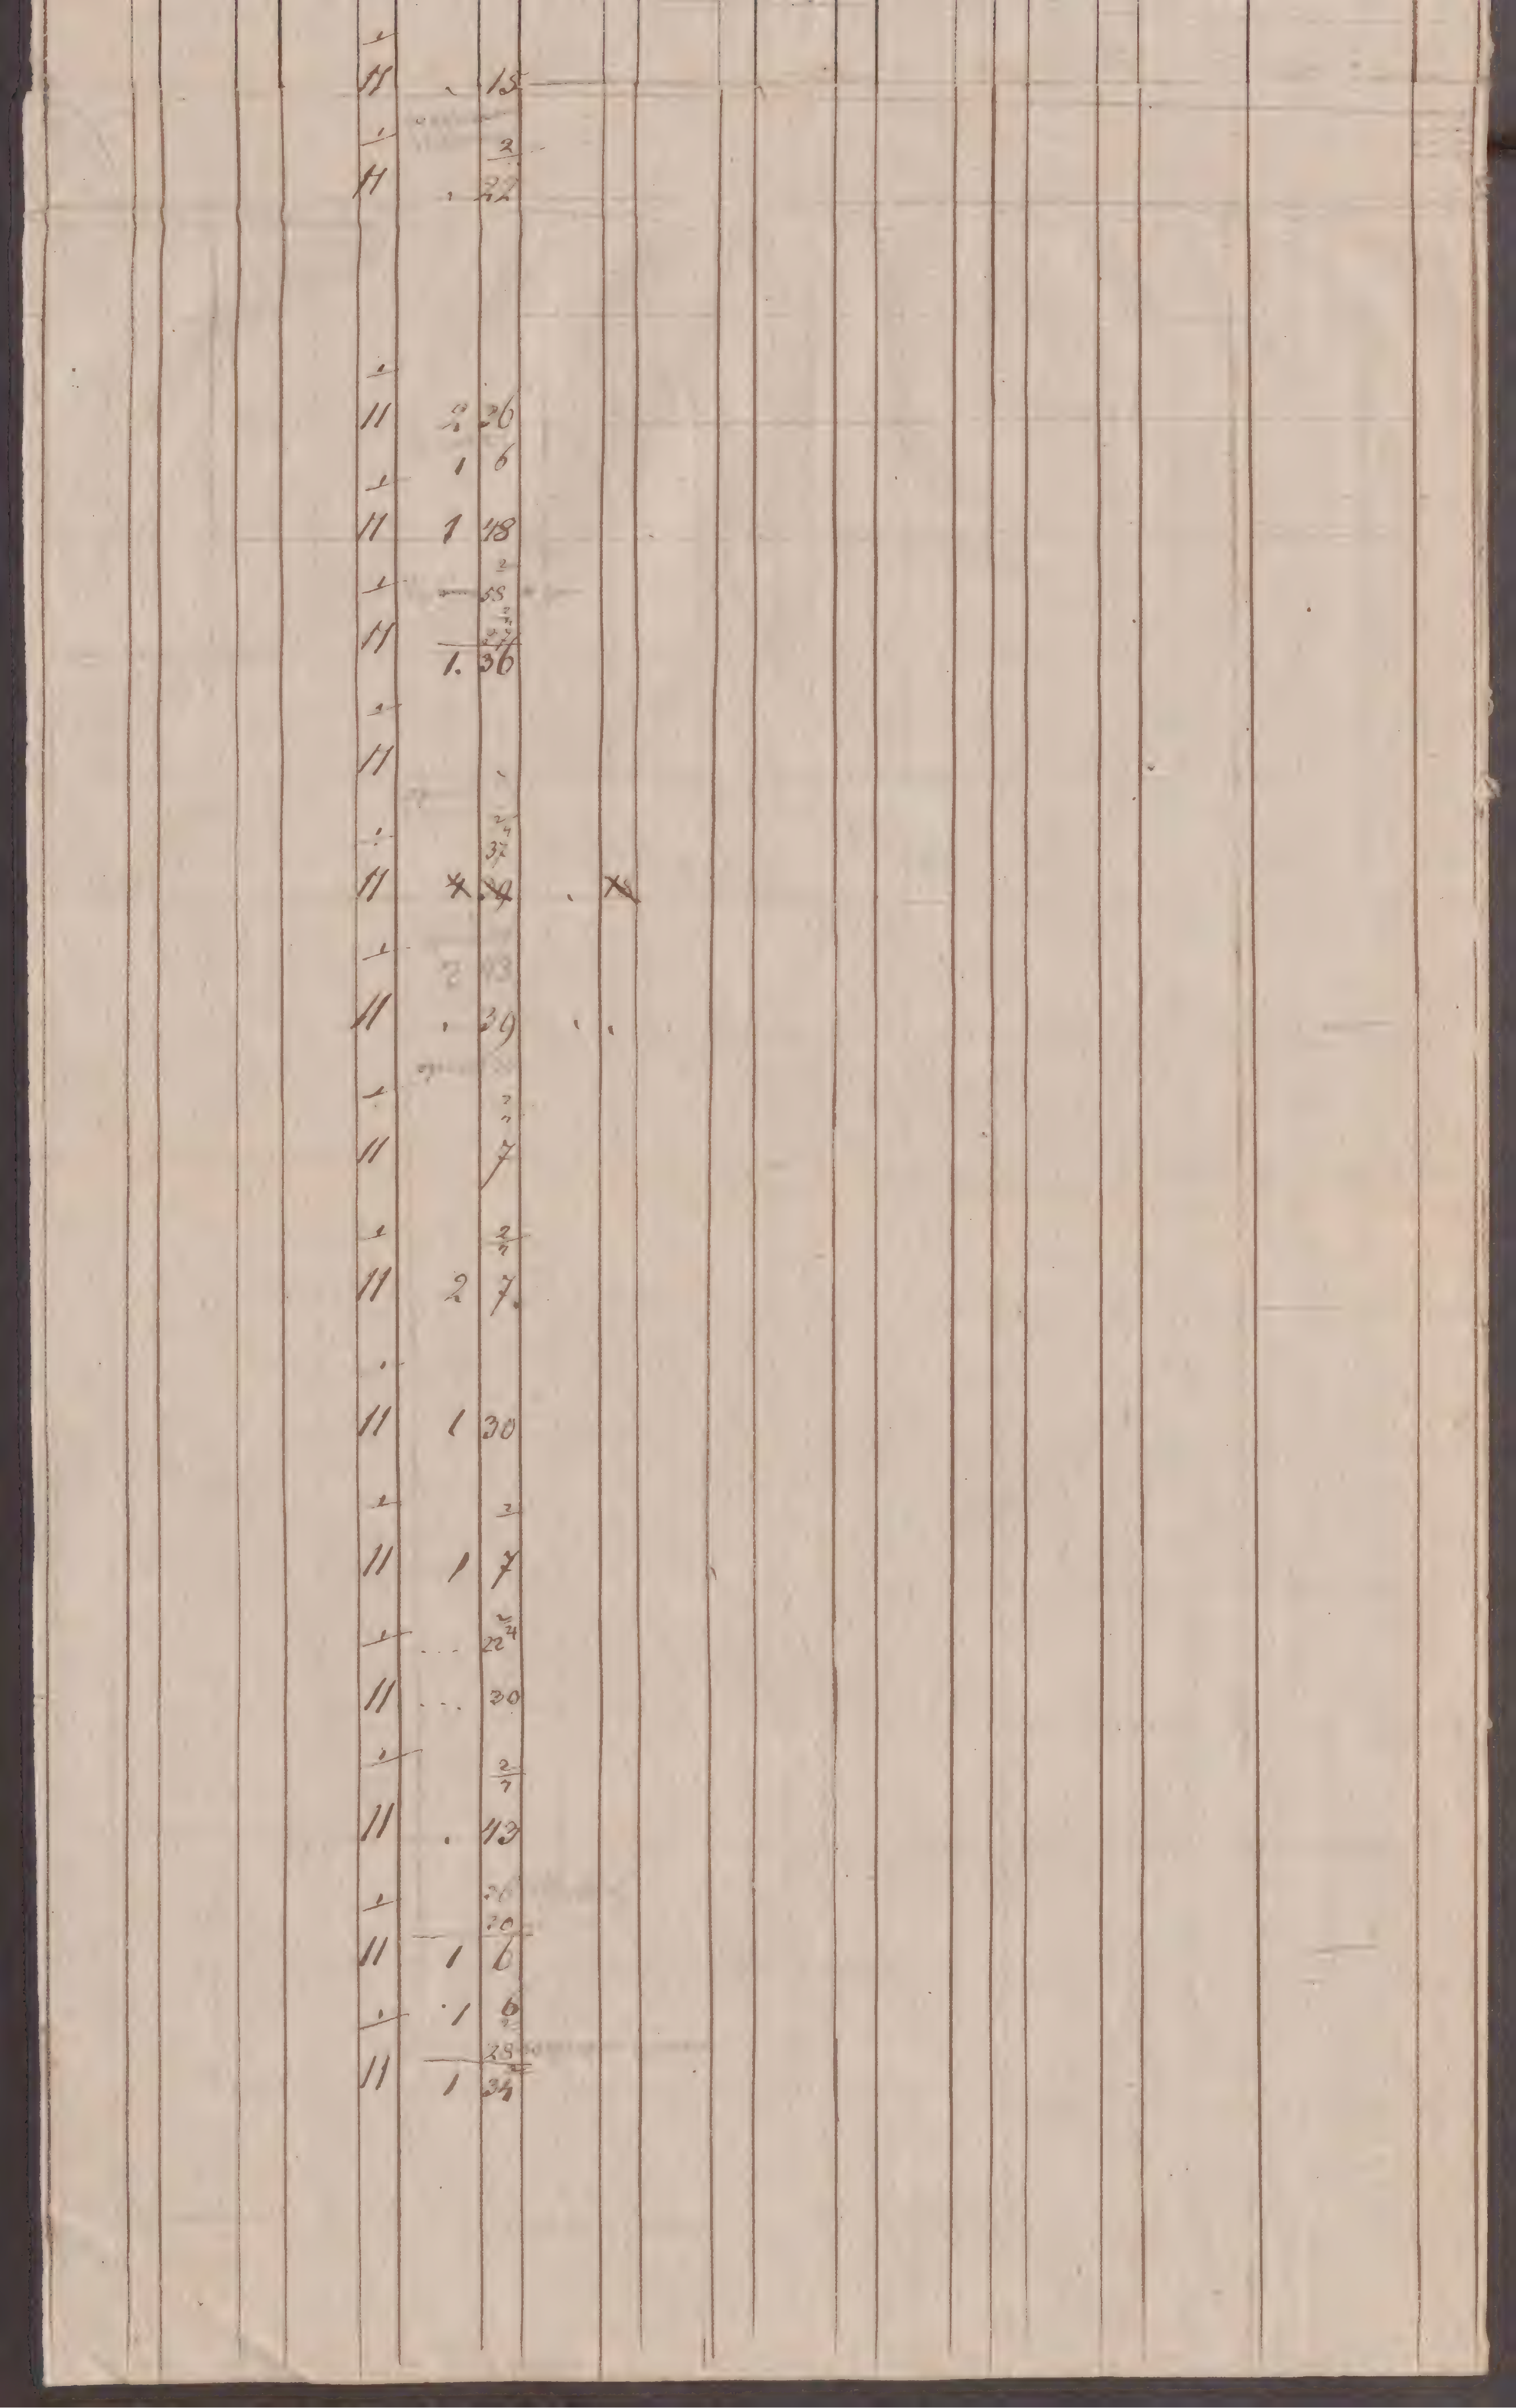 1
11 . 15
1
2
11 . 22
1
11 2 26
1 6
1
11 1 48
2
1 58
11
1. 36
1
11
2
4
1 37
11
1
2 43
11 . 39
1
11 7
1 2
7
11 2 7.
11 1 30
1 2
11 1 7
2
4
1 ... 22
11 ... 30
1 2
7
11 . 43
1 26
20
11 1 6
1 1 6
28
11 1 34